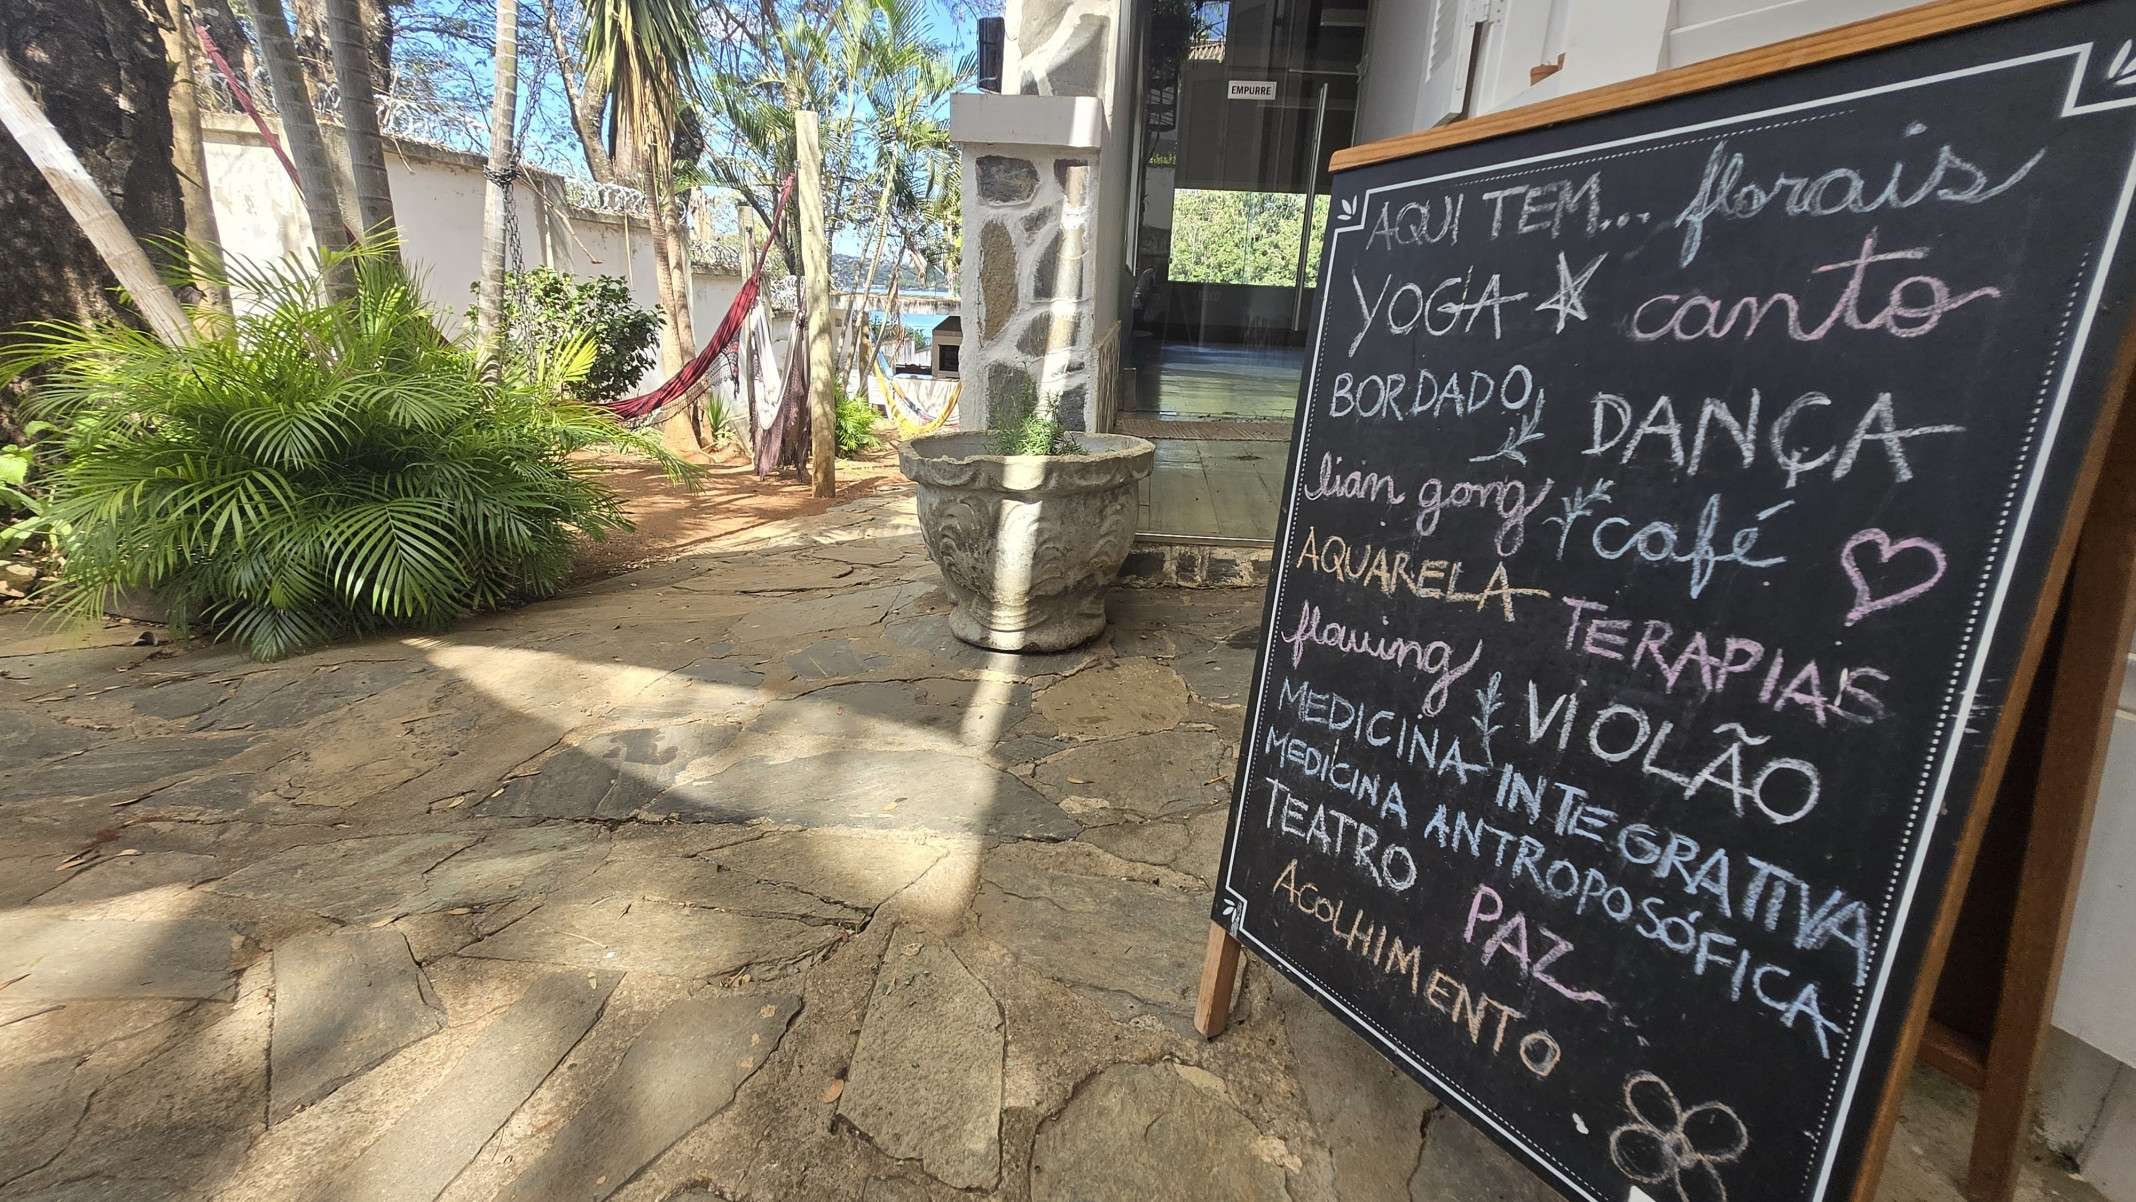 EMPURRE
AQUI TEM... florais
YOGA canto
BORDADO DANÇA
lian gong café
AQUARELA TERAPIAS
flowing VIOLÃO
MEDICINA INTEGRATIVA
MEDICINA ANTROPOSÓFICA
TEATRO PAZ
ACOLHIMENTO